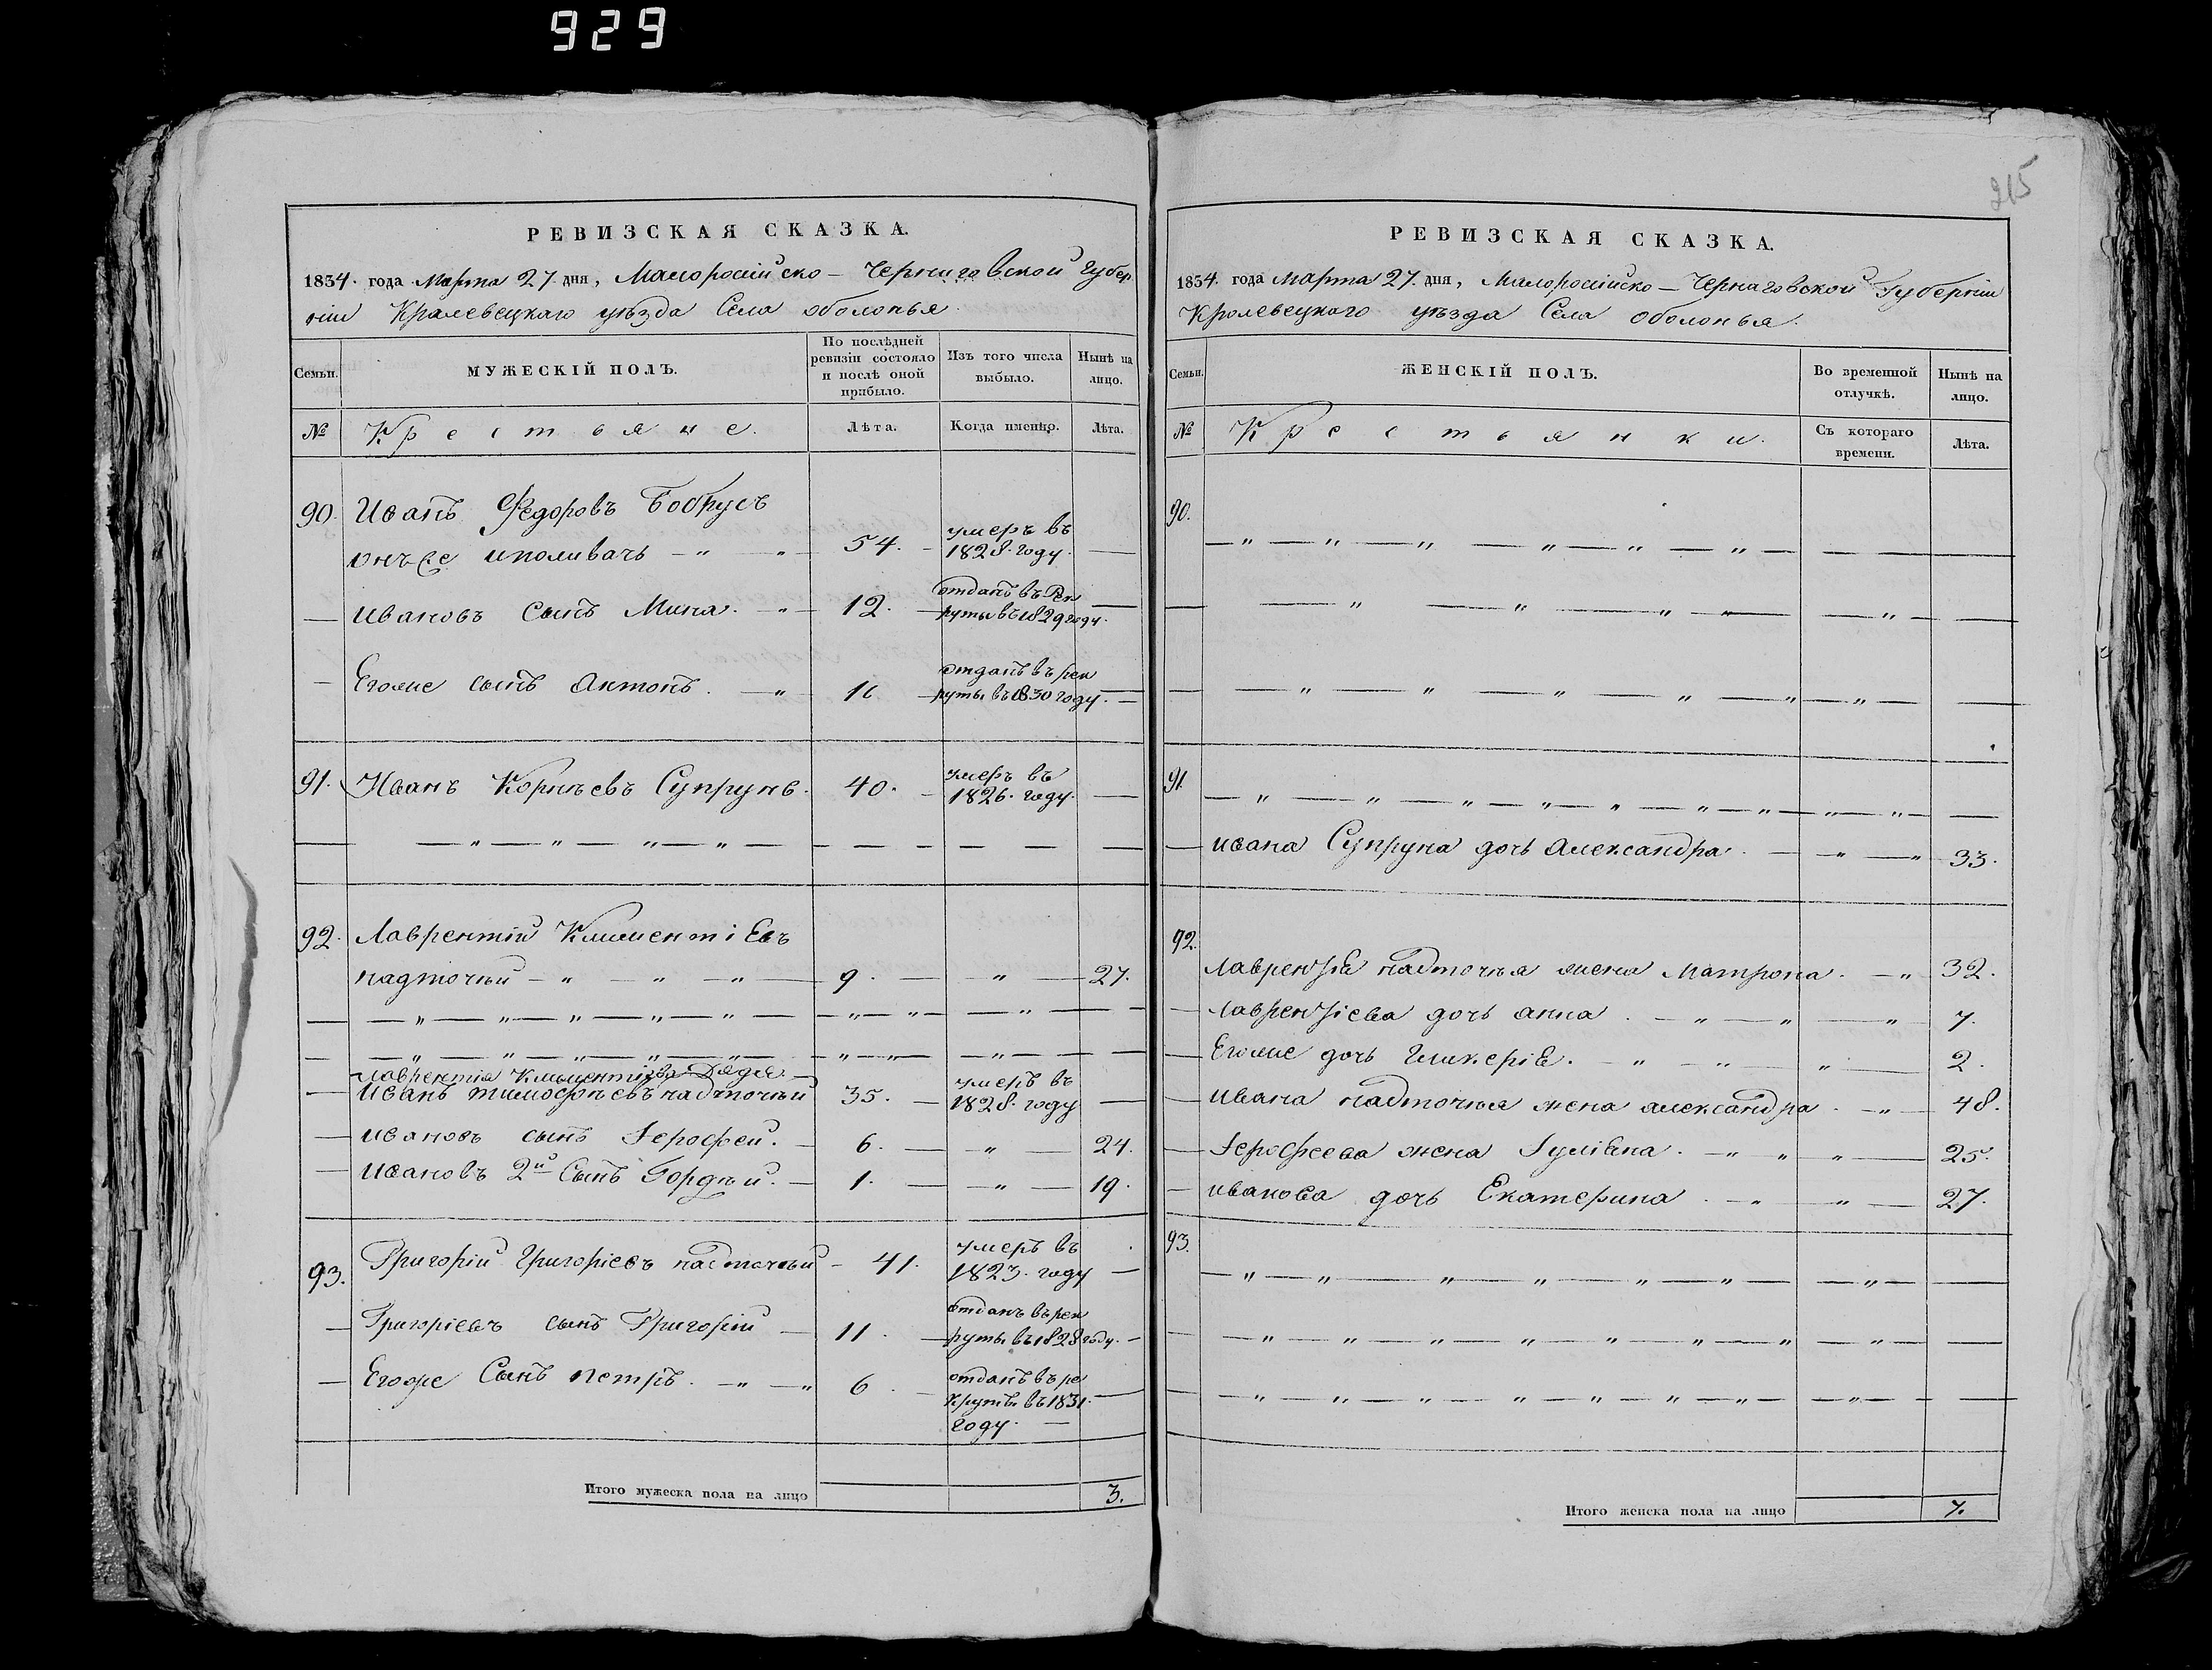 929
215
РЕВИЗСКАЯ СКАЗКА.
1834. года Марта 27. дня, Малоросійско – Черниговской Губер
ніи Кралевецкаго уѣзда Села оболонья.
Семьи. МУЖЕСКІЙ ПОЛЪ. По послѣдней ревизіи состояло и послѣ оной прибыло. Изъ того числа выбыло. Нынѣ на лицо.
№ Крестьяне. Лѣта. Когда именно. Лѣта.
90. Иванъ Федоровъ Бобрусъ
онъ же иполивачь – " – " 54. – умеръ въ 1828. году. –
– Ивановъ сынъ Мина. – " – 12. – отданъ въ Рек руты въ 1829 году. –
– Егоже сынъ Антонъ. – " – 11 – отданъ въ рек руты въ 1830 году. –
91. Иванъ Корнѣевъ Супрунъ. 40. – умеръ въ 1826. году. –
– – " – " – " – " –
92. Лаврентій Климентіевъ
надточѣй – " – " – " – 9. – " – 27.
– – " – " – " – " – " –
– – " – " – " – " – " –
Лаврентія Климентіева Дядя –
– Иванъ тимофѣевъ надточѣй 35. – умеръ въ 1828. году –
– Ивановъ сынъ Іерофей. – 6. – " – 24.
– Ивановъ 2й Сынъ Гордѣй. – 1. – " – 19.
93. Григорій Григоріевъ надточѣй – 41. умеръ въ 1823. году –
– Григоріевъ сынъ Григорій – 11. – отданъ въ рек руты въ 1828 году. –
– Егоже Сынъ петръ. – " – " 6. – отданъ въ ре круты въ 1831. году. –
Итого мужеска пола на лицо 3.
РЕВИЗСКАЯ СКАЗКА.
1834. года Марта 27. дня, Малоросійско – Черниговской Губерніи
Кролевецкаго уѣзда Села оболонья.
Семьи. ЖЕНСКІЙ ПОЛЪ. Во временной отлучкѣ. Нынѣ на лицо.
№ Крестьянки. Съ котораго времени. Лѣта.
90. – " – " – " – " – " –
– – " – " – " – " – " –
– – " – " – " – " – " – " –
91. – " – " – " – " – " – " – " –
– Ивана Супруна дочь Александра. – " – " 33.
92.
Лаврентія надточія жена Матрона. – " 32.
– Лаврентіева дочь анна. – " – " – " 7.
– Егоже дочь Гликерія. – " – " – " 2.
– Ивана надточѣя жена александра. – " – 48.
– Іерофеева жена Іуліяна. – " – " – " 25.
– Иванова дочь Екатерина. – " – " 27.
93. – " – " – " – " – " – " –
– – " – " – " – " – " – " –
– – " – " – " – " – " – " –
Итого женска пола на лицо 7.